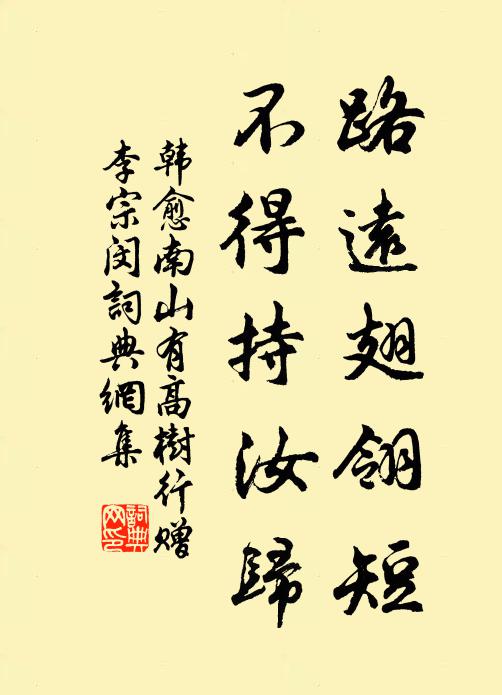 路遠翅翎短
不得持汝歸
韩愈南山有高樹行赠
李宗闵詞典網集
詞典
网印